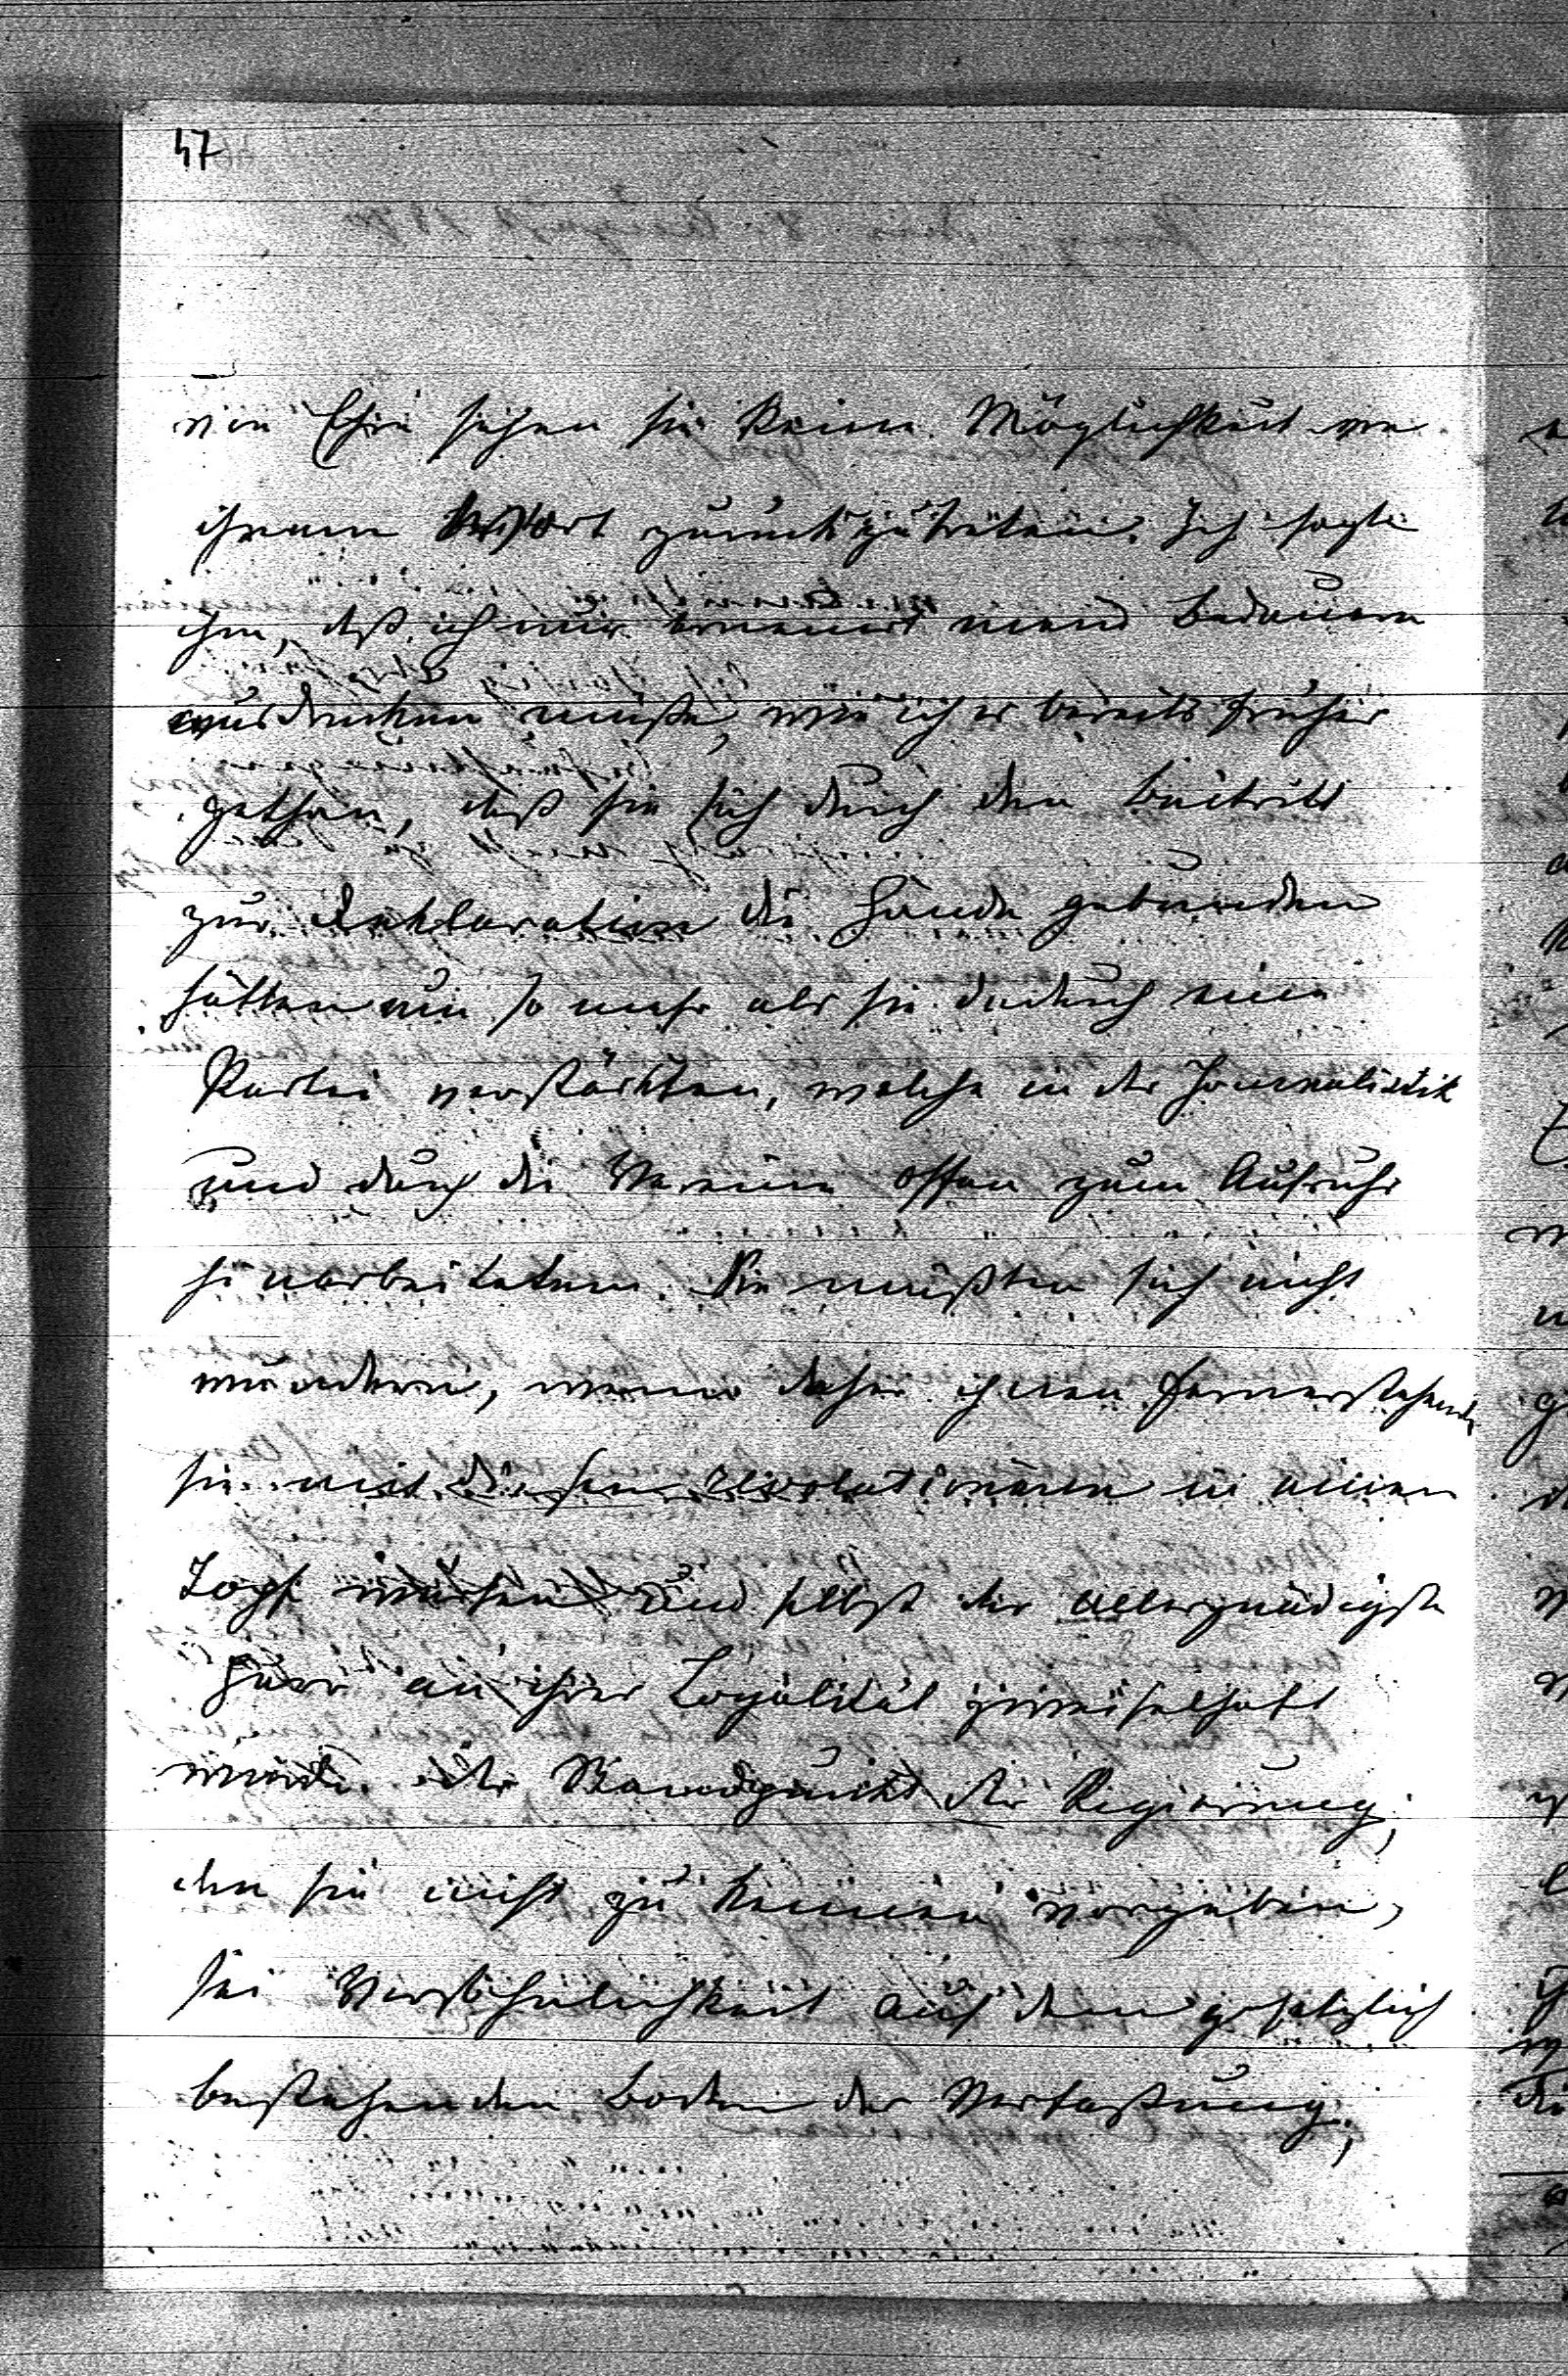 47
von Ehre sehen sie keine Möglichkeit von
ihrem Wort zurückzutreten. Ich sagte
ihm, daß ich nur erneuert mein Bedauern
ausdrucken müße, wie ich es bereits früher
gethan, daß sie sich durch den Beitritt
zur Deklaration die Hände gebunden
hätten um so mehr als sie dadurch eine
Partei verstärkten, welche in der Journalistik
und durch die Vereine offen zum Aufruhr
hinarbeiteten. Sie müßten sich nicht
wundern, wenn daher ihnen Fernerstehende
sie mit diesen Revolutionären in einen
Topf würfen und selbst der allergnädigste
Herr an ihrer Loyalität zweifelhaft
würde. Der Standpunkt der Regierung,
den sie nicht zu kennen vorgeben,
sei Versöhnlichkeit auf dem gesetzlich
bestehenden Boden der Verfaßung,